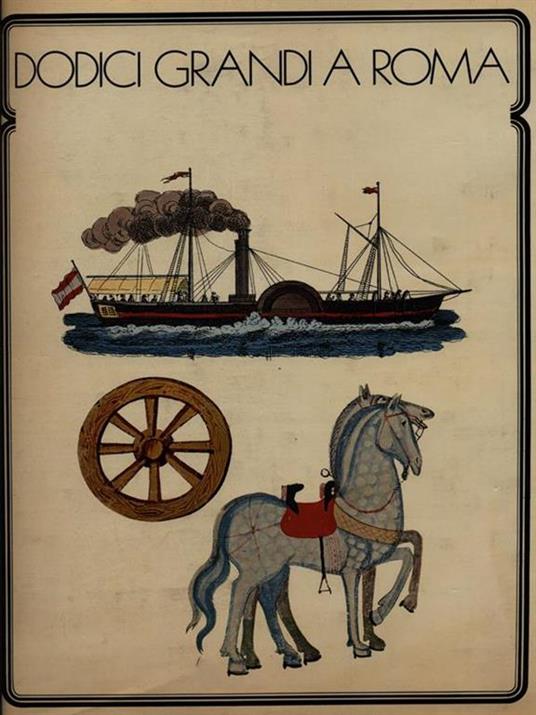 DODICI GRANDI A ROMA